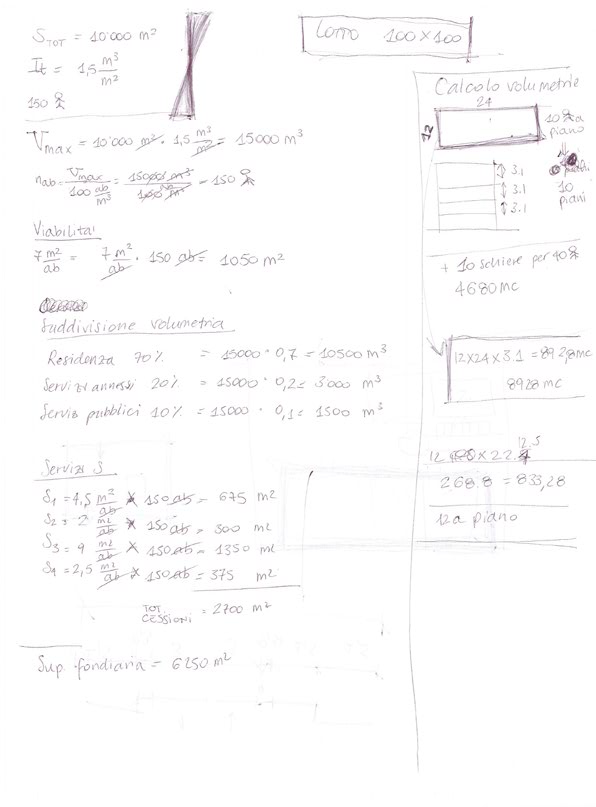 LOTTO 100 x 100
STOT = 10'000 m²
It = 1,5 m³/m²
150
Vmax = 10'000 m² · 1,5 m³/m² = 15000 m³
nab = Vmax / 100 ab/m³ = 15000 m³ / 100 ab/m³ = 150
Viabilita'
7 m²/ab = 7 m²/ab · 150 ab = 1050 m²
Suddivisione volumetria
Residenza 70% = 15000 · 0,7 = 10500 m³
Servizi annessi 20% = 15000 · 0,2 = 3'000 m³
Serviz pubblici 10% = 15000 · 0,1 = 1500 m³
Servizi S
S1 = 4,5 m²/ab x 150 ab = 675 m²
S2 = 2 m2/ab x 150 ab = 300 m2
S3 = 9 m2/ab x 150 ab = 1350 m2
S4 = 2,5 m2/ab x 150 ab = 375 m2
TOT. CESSIONI = 2700 m²
Sup. fondiaria = 6250 m²
Calcolo volumetrie
24
12
10 a
piano
3.1
3.1
3.1
10
piani
+ 10 schiere per 40
4680 mc
12 x 24 x 3.1 = 892,8 mc
8928 mc
12.5
12 x 22.4
268.8 = 833,28
12 a piano